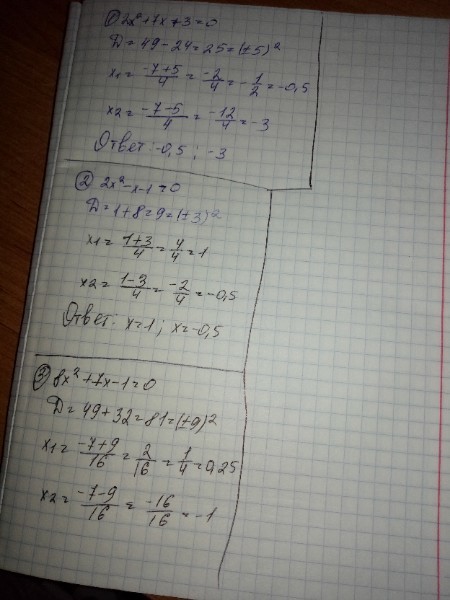 ① 2x²+7x+3=0
D = 49-24=25=(±5)²
x1= -7+5/4 = -2/4 = -1/2 = -0,5
x2= -7-5/4 = -12/4 = -3
Ответ: -0,5 ; -3
② 2x²-x-1=0
D=1+8=9=(±3)²
x1= 1+3/4 = 4/4 = 1
x2= 1-3/4 = -2/4 = -0,5
Ответ: x=1 ; x=-0,5
③ 8x²+7x-1=0
D= 49+32=81=(±9)²
x1= -7+9/16 = 2/16 = 1/4 = 0,25
x2= -7-9/16 = -16/16 = -1